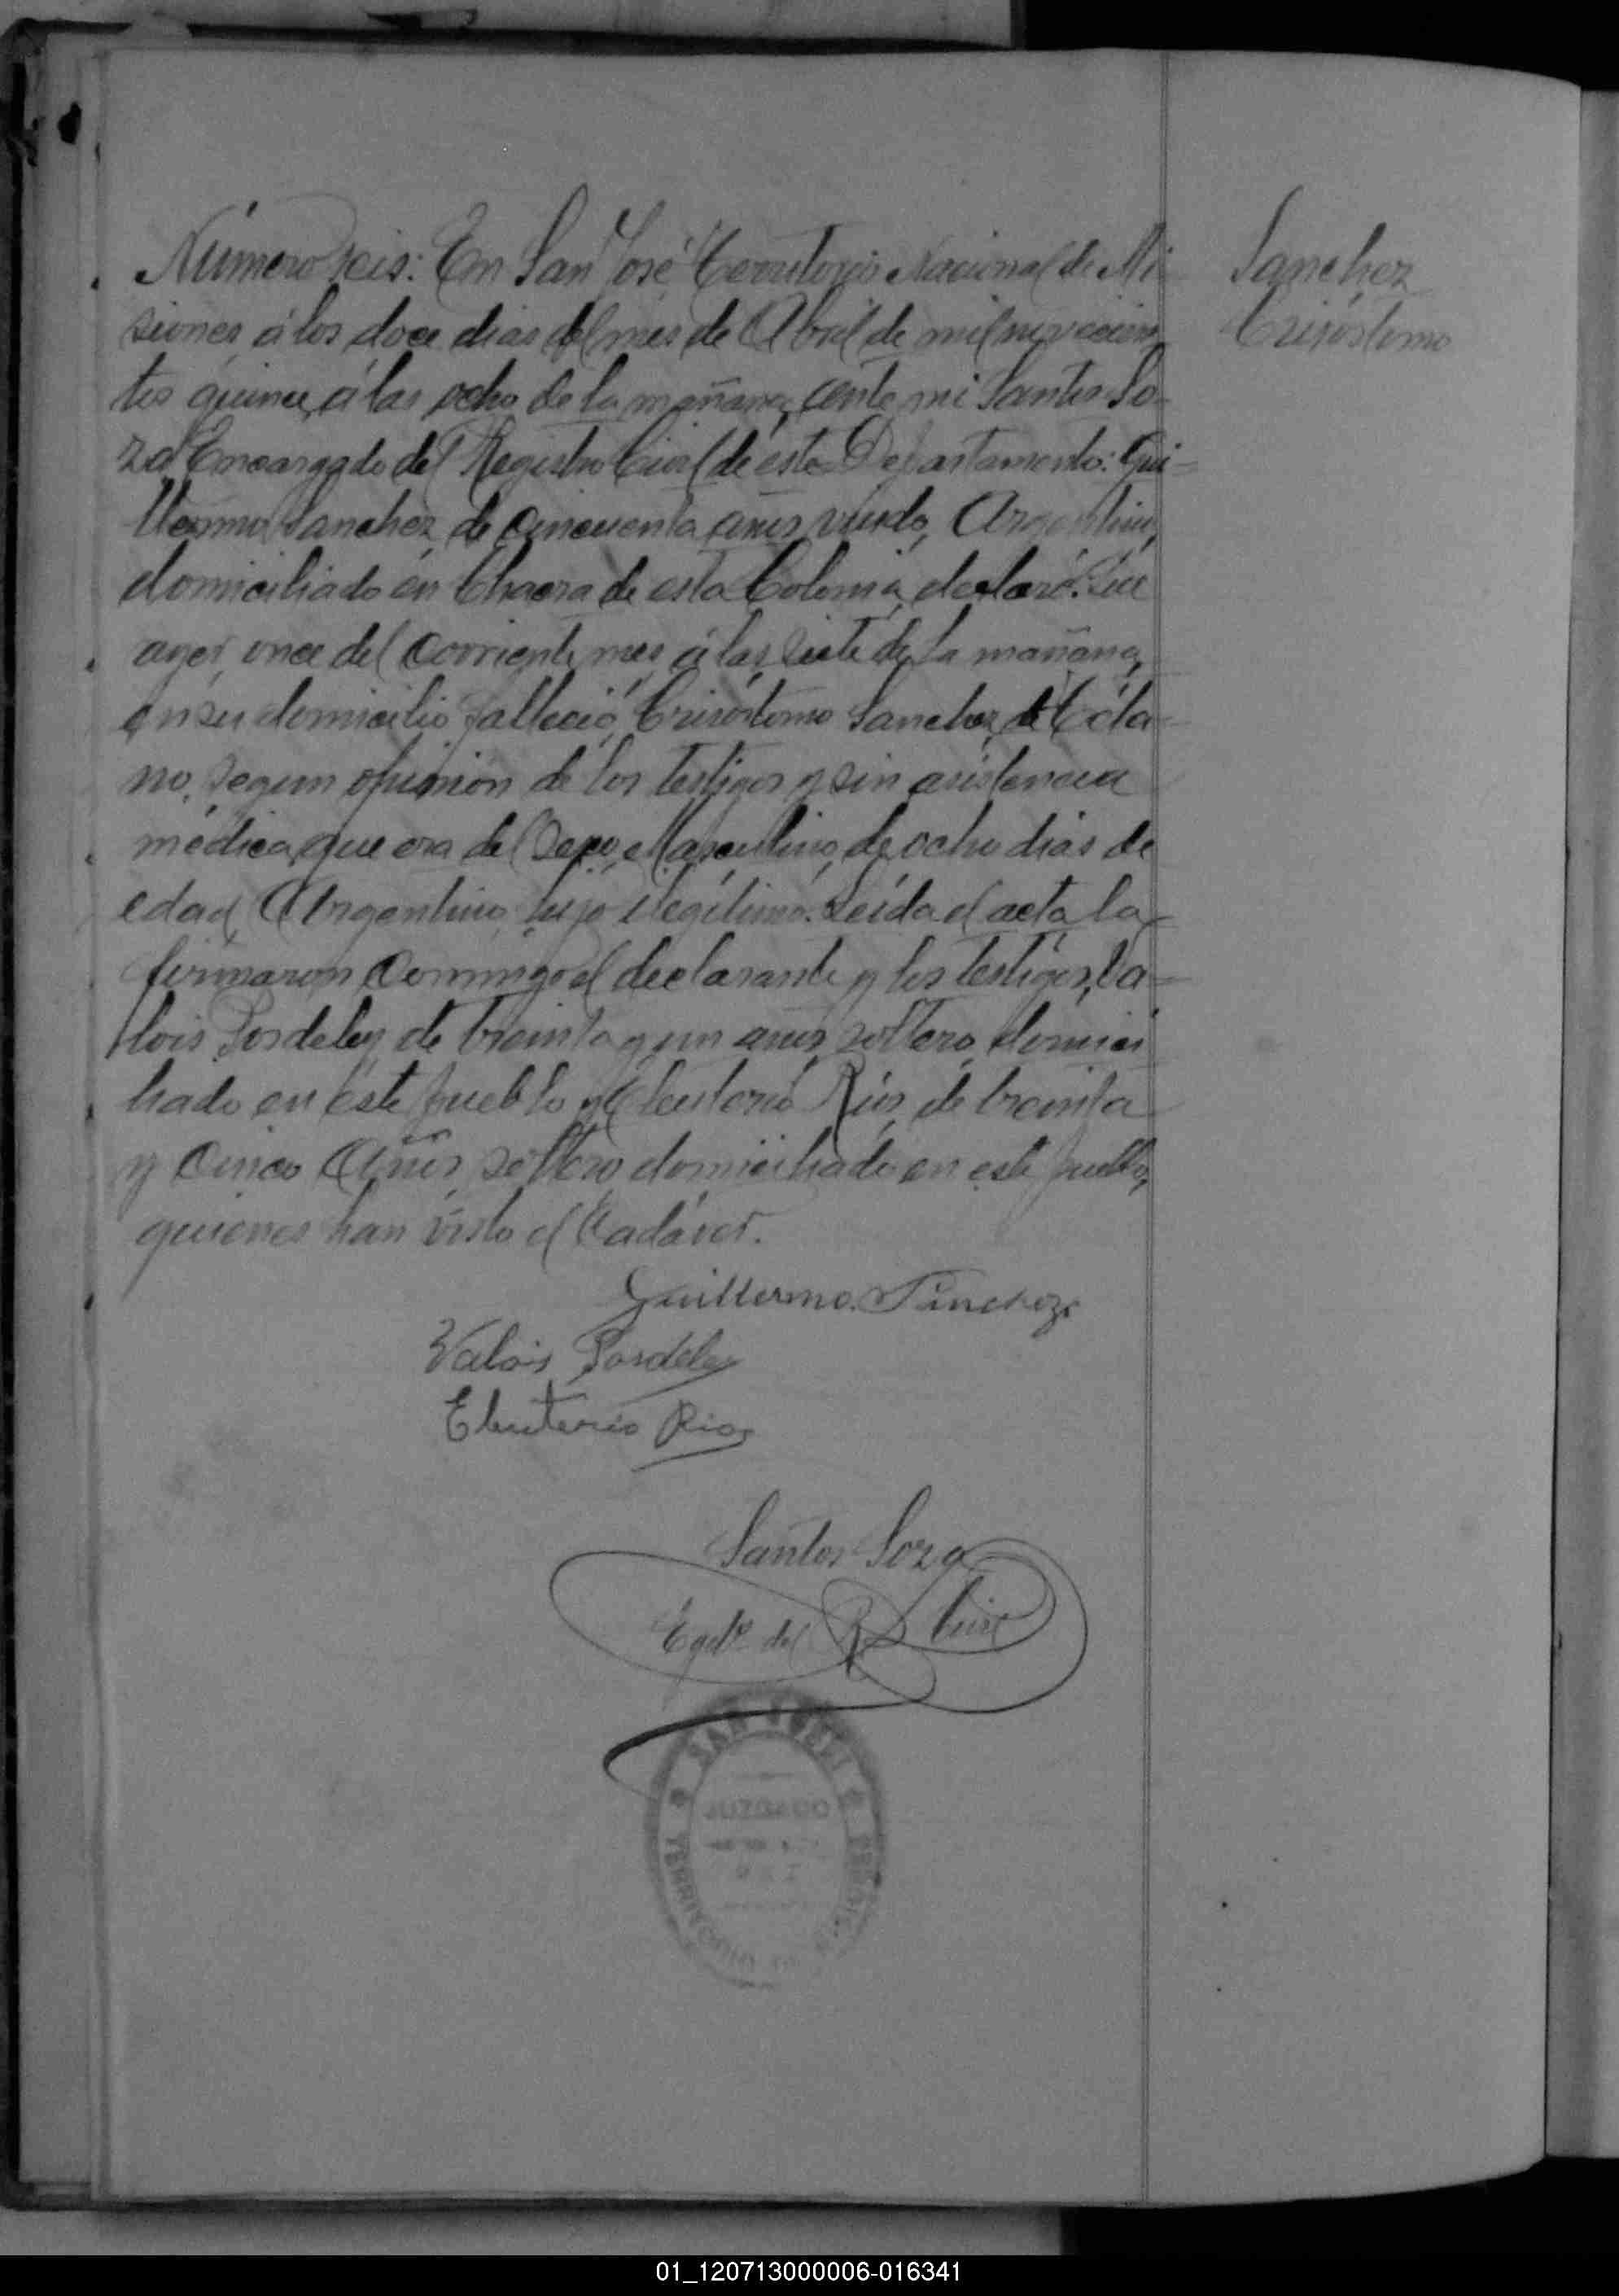 Número seis: En San José Territorio Nacional de Mi
Sanchez
Crisóstomo
siones, á los doce dias del mes de Abril de mil novecien
tos quince, á las ocho de la mañana, ante mi Santos So-
za Encargado del Registro Civil de este Departamento: Gui=
llermo Sanchez, de cincuenta años, viudo, Argentino,
domiciliado en Chacra de esta Colonia, declaró: Que
ayer, once del corriente mes á las siete de la mañana,
en su domicilio falleció, Crisóstomo Sanchez, de Téta=
no, segun opinión de los testigos y sin asistencia
médica, que era del Sexo, Masculino, de ocho dias de
edad, Argentino, hijo ilegítimo. Leída el acta, la
firmaron conmigo el declarante y los testigos, Va=
lois Pordeley de treinta y un años, soltero, domici
liado en éste pueblo y Eleuterio Rios, de treinta
y cinco Años, soltero domiciliado en este pueblo,
quienes han visto el Cadáver.
Guillermo Sanchez
Valois Pordeley
Eleuterio Rios
Santos Soza
Egdo. del R. Civil
SAN JOSE
JUZGADO
TERRITORIO DE